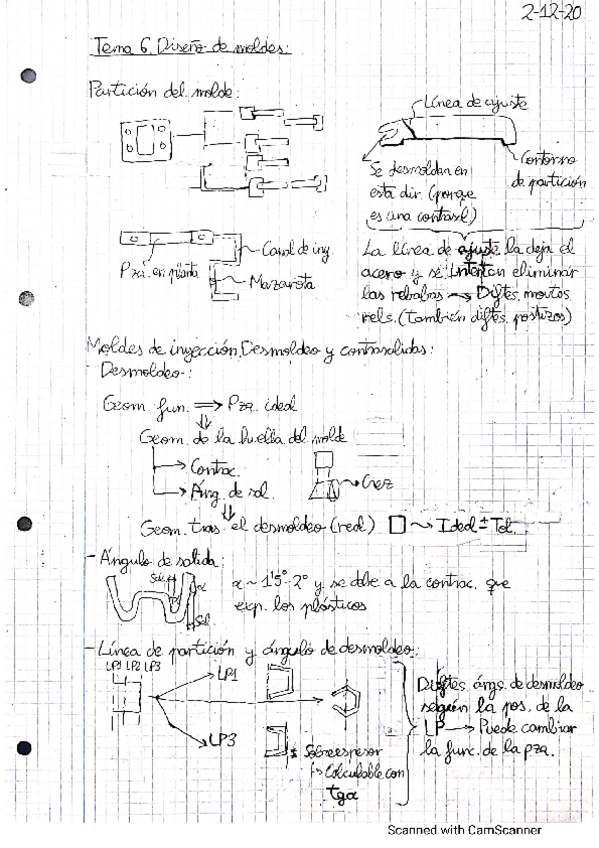 2-12-20
Tema 6. Diseño de moldes:
Partición del molde:
Línea de ajuste
Contorno
de partición
Se desmoldan en
esta dir. (porque
es una contrasal.)
Canal de iny.
Pza. en planta
Mazarota
La línea de ajuste la deja el
acero y se intentan eliminar
las rebabas → Diftes. moldes
rels. (también diftes. postizos)
Moldes de inyección. Desmoldeo y contrasalidas:
Desmoldeo:
Geom. fun. ⟹ Pza. ideal
Geom. de la huella del molde
→ Contrac.
→ Áng. de sal.
Geom. tras el desmoldeo (real) Ideal ± Tol.
- Ángulo de salida:
Sal.
α
Sal.
α ~ 1'5º-2º y se debe a la contrac. que
exp. los plásticos
- Línea de partición y ángulo de desmoldeo:
LP1 LP2 LP3
LP1
LP3
Sobreespesor
↳ Calculable con
tgα
Diftes. ángs. de desmoldeo
según la pos. de la
LP → Puede cambiar
la func. de la pza.
Scanned with CamScanner